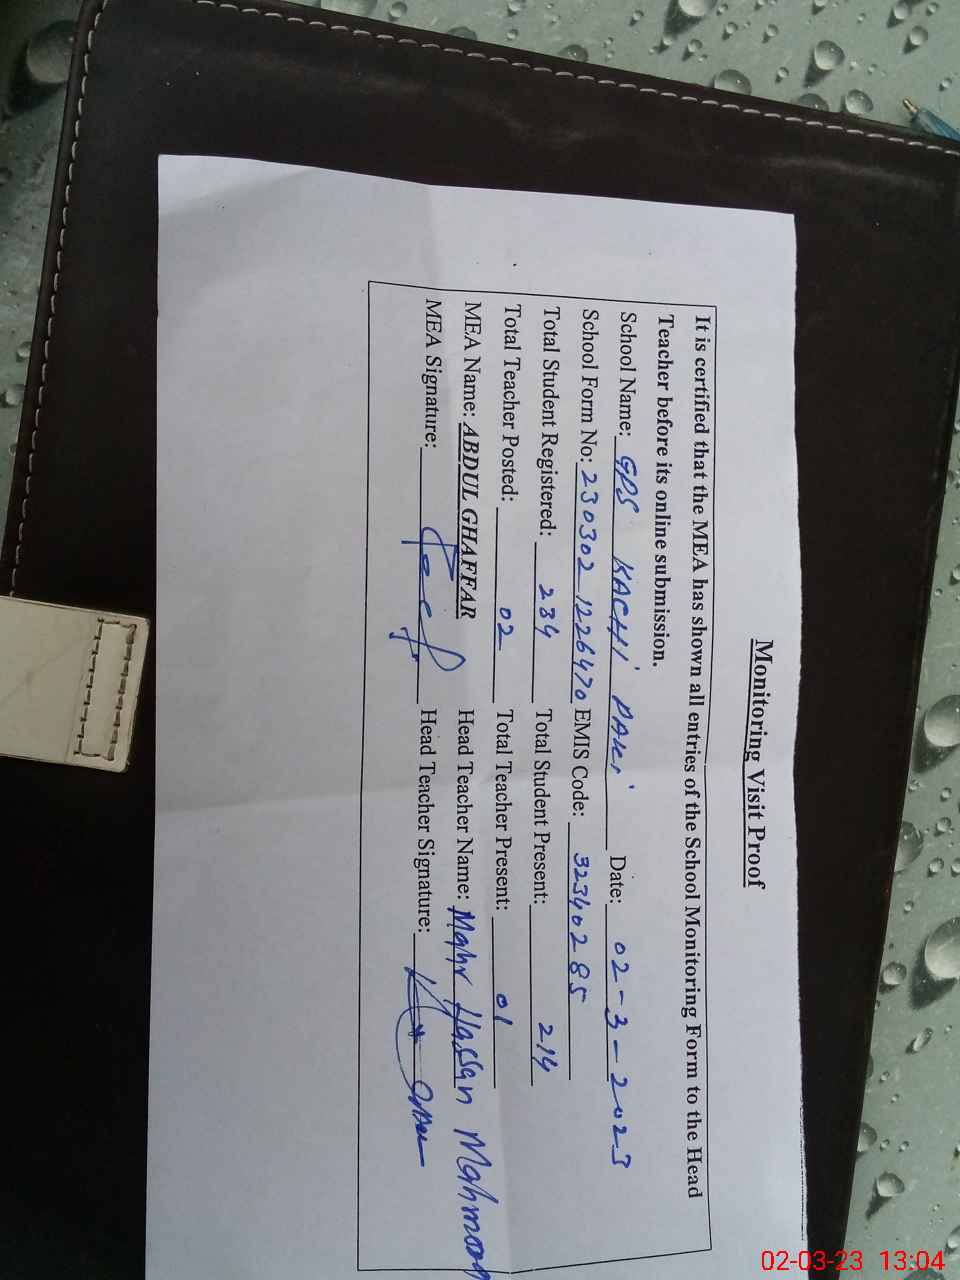 Monitoring Visit Proof
It is certified that the MEA has shown all entries of the School Monitoring Form to the Head
Teacher before its online submission.
School Name: GPS KACHI PAKI Date: 02-3-2023
School Form No: 230302_1226470 EMIS Code: 32340285
Total Student Registered: 234 Total Student Present: 214
Total Teacher Posted: 02 Total Teacher Present: 01
MEA Name: ABDUL GHAFFAR Head Teacher Name: Mahr Hassan Mahmood
MEA Signature: Head Teacher Signature:
02-03-23 13:04